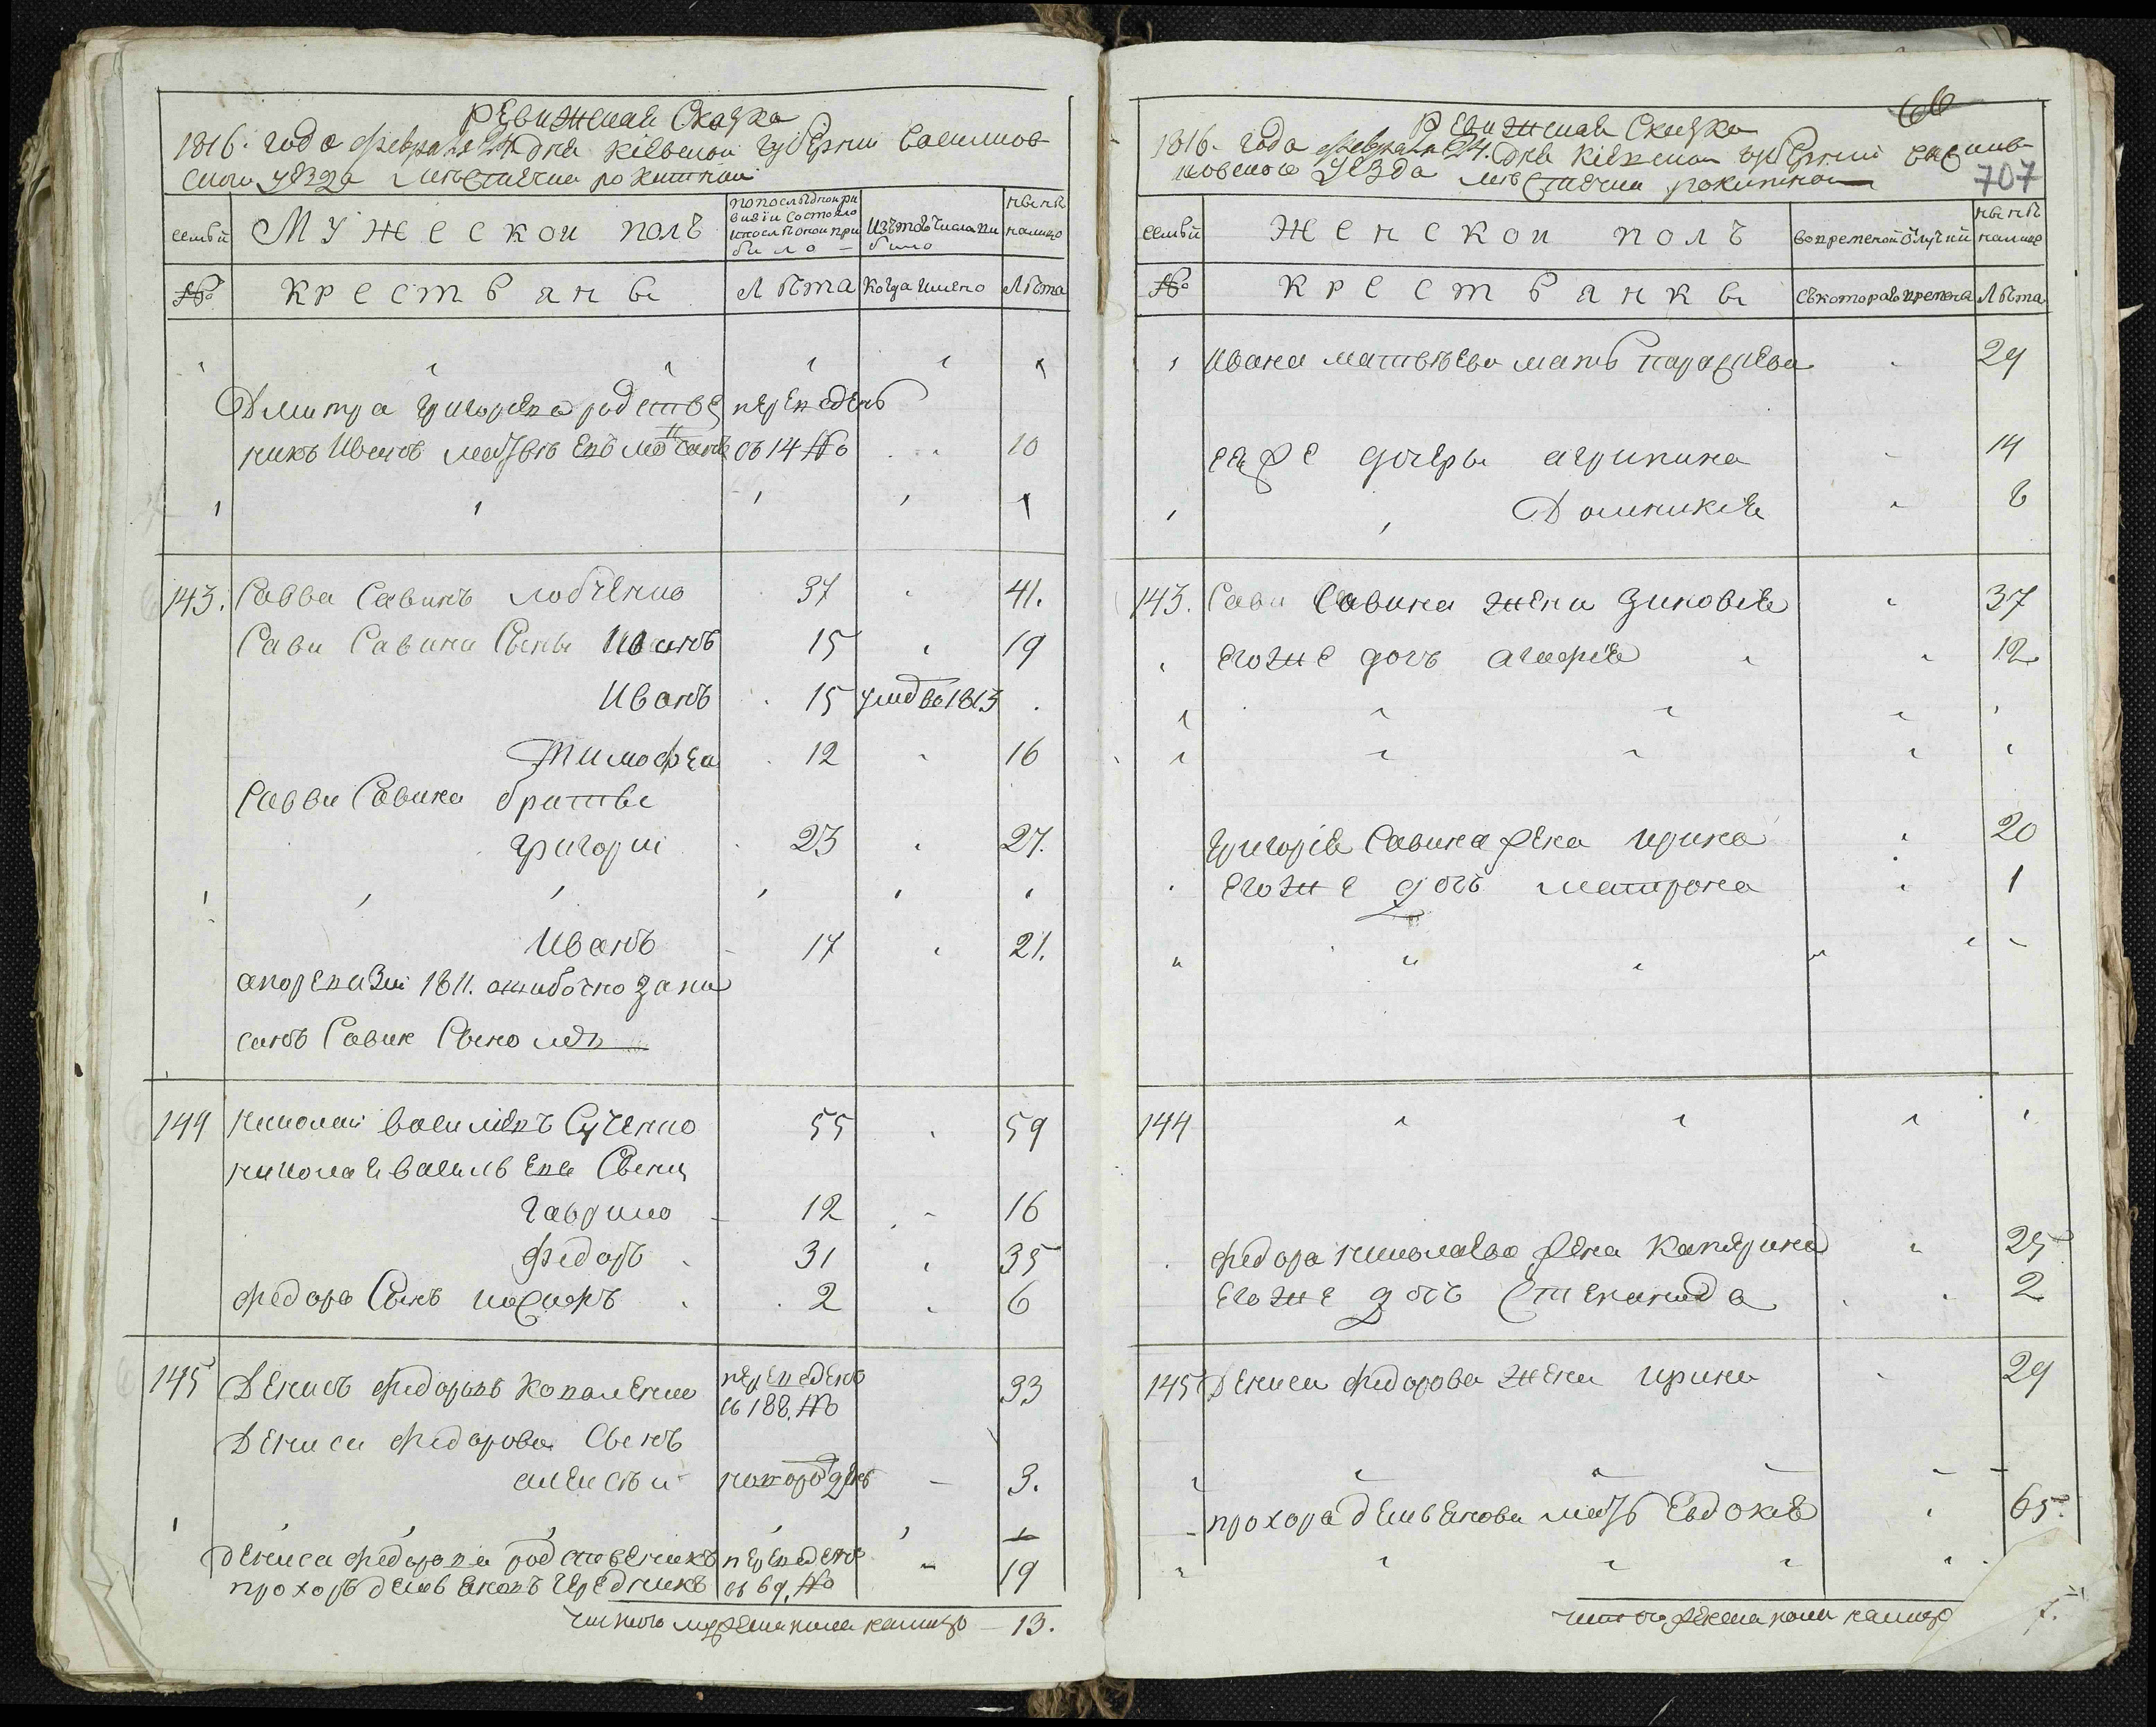 Ревижская Сказка
1816. года февраля 24 дня Кіевской губерніи васильков-
ского уезда местечка рокитной
семьи
Мужеской полъ
по последной ри
визіи состояло
и после оной при
было
изъ того числа вы
было
ныне
налицо
№
крестьяне
Лѣта
когда имяно
Лѣта
Дмитра григорева родстве переведенъ
никъ Иванъ матвѣевъ съ 14 № 10
143. Савва Савинъ лобченко 37 41.
Сави Савина Сыны Иванъ 15 19
Иванъ 15 умер въ 1813
Тимофей 12 16
Саввы Савина братья
григорій 23 27.
Иванъ 17 21.
а по ревизіи 1811. ошибочно запи
санъ Савин Сыномъ
144 николай васильевъ Сученко 55 59
николая васильева Сыны
гаврило 12 16
федоръ 31 35
федора Сынъ иосифъ 2 6
145 Денисъ федоровъ коваленко переведенъ съ 188. № 33
Дениса федорова Сынъ
алексѣй новорожденъ 3.
дениса федорова родственикъ переведенъ
прохоръ демьяновъ чередникъ съ 69. № 19
итого мужеска пола налицо 13.
707
Ревижская Сказка
1816. года февраля 24. дня Кіевской губерніи василь-
ковского Уезда местечка рокитной
семьи
Женской полъ
во временной отлучки
ныне
налицо
№
крестьянки
съ котораго времена
Лѣта
Ивана матвѣева мать параскева 29
ея же дочеры агрипина 14
Домникія 6
143. Сави Савина жена зиновія 37
его же дочь агафія 12
григорія Савина жена ирина 20
его же дочь матрона 1
144
федора николаева жена катерина 25
его же дочь степанида 2
145 Дениса федорова жена ирина 29
прохора демьянова мать Евдокія 65.
итого женска пола налицо 7.